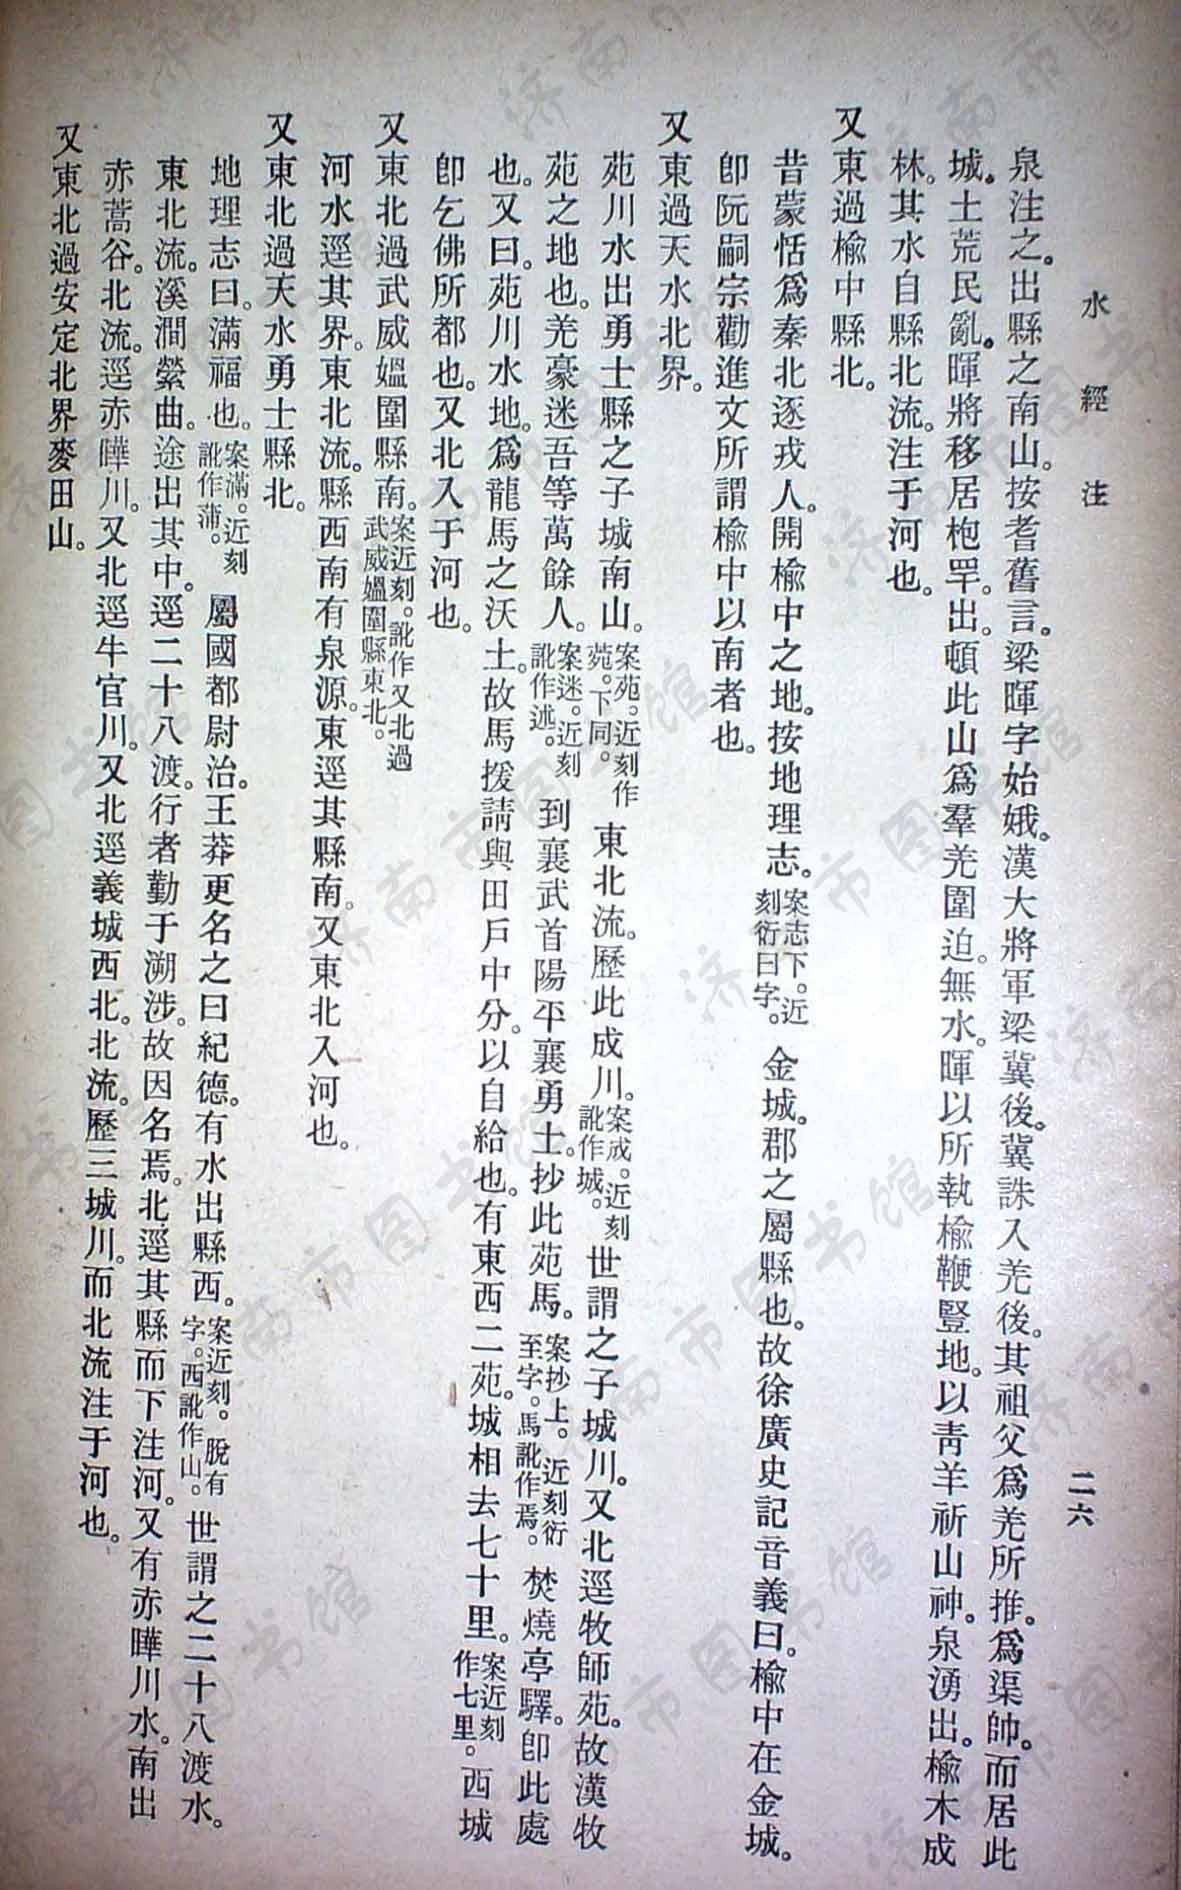 水經注
二六
泉注之。出縣之南山。按耆舊言。梁暉字始娥。漢大將軍梁冀後。冀誅入羌後。其祖父爲羌所推。爲渠帥。而居此
城。土荒民亂。暉將移居枹罕。出頓此山。爲羣羌圍迫。無水。暉以所執榆鞭豎地。以青羊祈山神。泉湧出。榆木成
林。其水自縣北流。注于河也。
又東過榆中縣北。
昔蒙恬爲秦北逐戎人。開榆中之地。按地理志。案志下。近刻衍曰字。金城。郡之屬縣也。故徐廣史記音義曰。榆中在金城。
卽阮嗣宗勸進文所謂榆中以南者也。
又東過天水北界。
苑川水出勇士縣之子城南山。案苑。近刻作菀。下同。東北流。歷此成川。案成。近刻訛作城。世謂之子城川。又北逕牧師苑。故漢牧
苑之地也。羌豪迷吾等萬餘人。案迷。近刻訛作述。到襄武首陽平襄勇士。抄此苑馬。案抄上。近刻衍至字。馬訛作焉。焚燒亭驛。卽此處
也。又曰。苑川水地。爲龍馬之沃土。故馬援請與田戶中分。以自給也。有東西二苑。城相去七十里。案近刻作七里。西城
卽乞佛所都也。又北入于河也。
又東北過武威媼圍縣南。案近刻。訛作又北過武威媼圍縣東北。
河水逕其界。東北流。縣西南有泉源。東逕其縣南。又東北入河也。
又東北過天水勇士縣北。
地理志曰。滿福也。案滿。近刻訛作蒲。屬國都尉治。王莽更名之曰紀德。有水出縣西。案近刻。脫有字。西訛作山。世謂之二十八渡水。
東北流。溪澗縈曲。途出其中。逕二十八渡。行者勤于溯涉。故因名焉。北逕其縣而下注河。又有赤曄川水。南出
赤蒿谷。北流。逕赤曄川。又北逕牛官川。又北逕義城西北。北流。歷三城川。而北流注于河也。
又東北過安定北界麥田山。